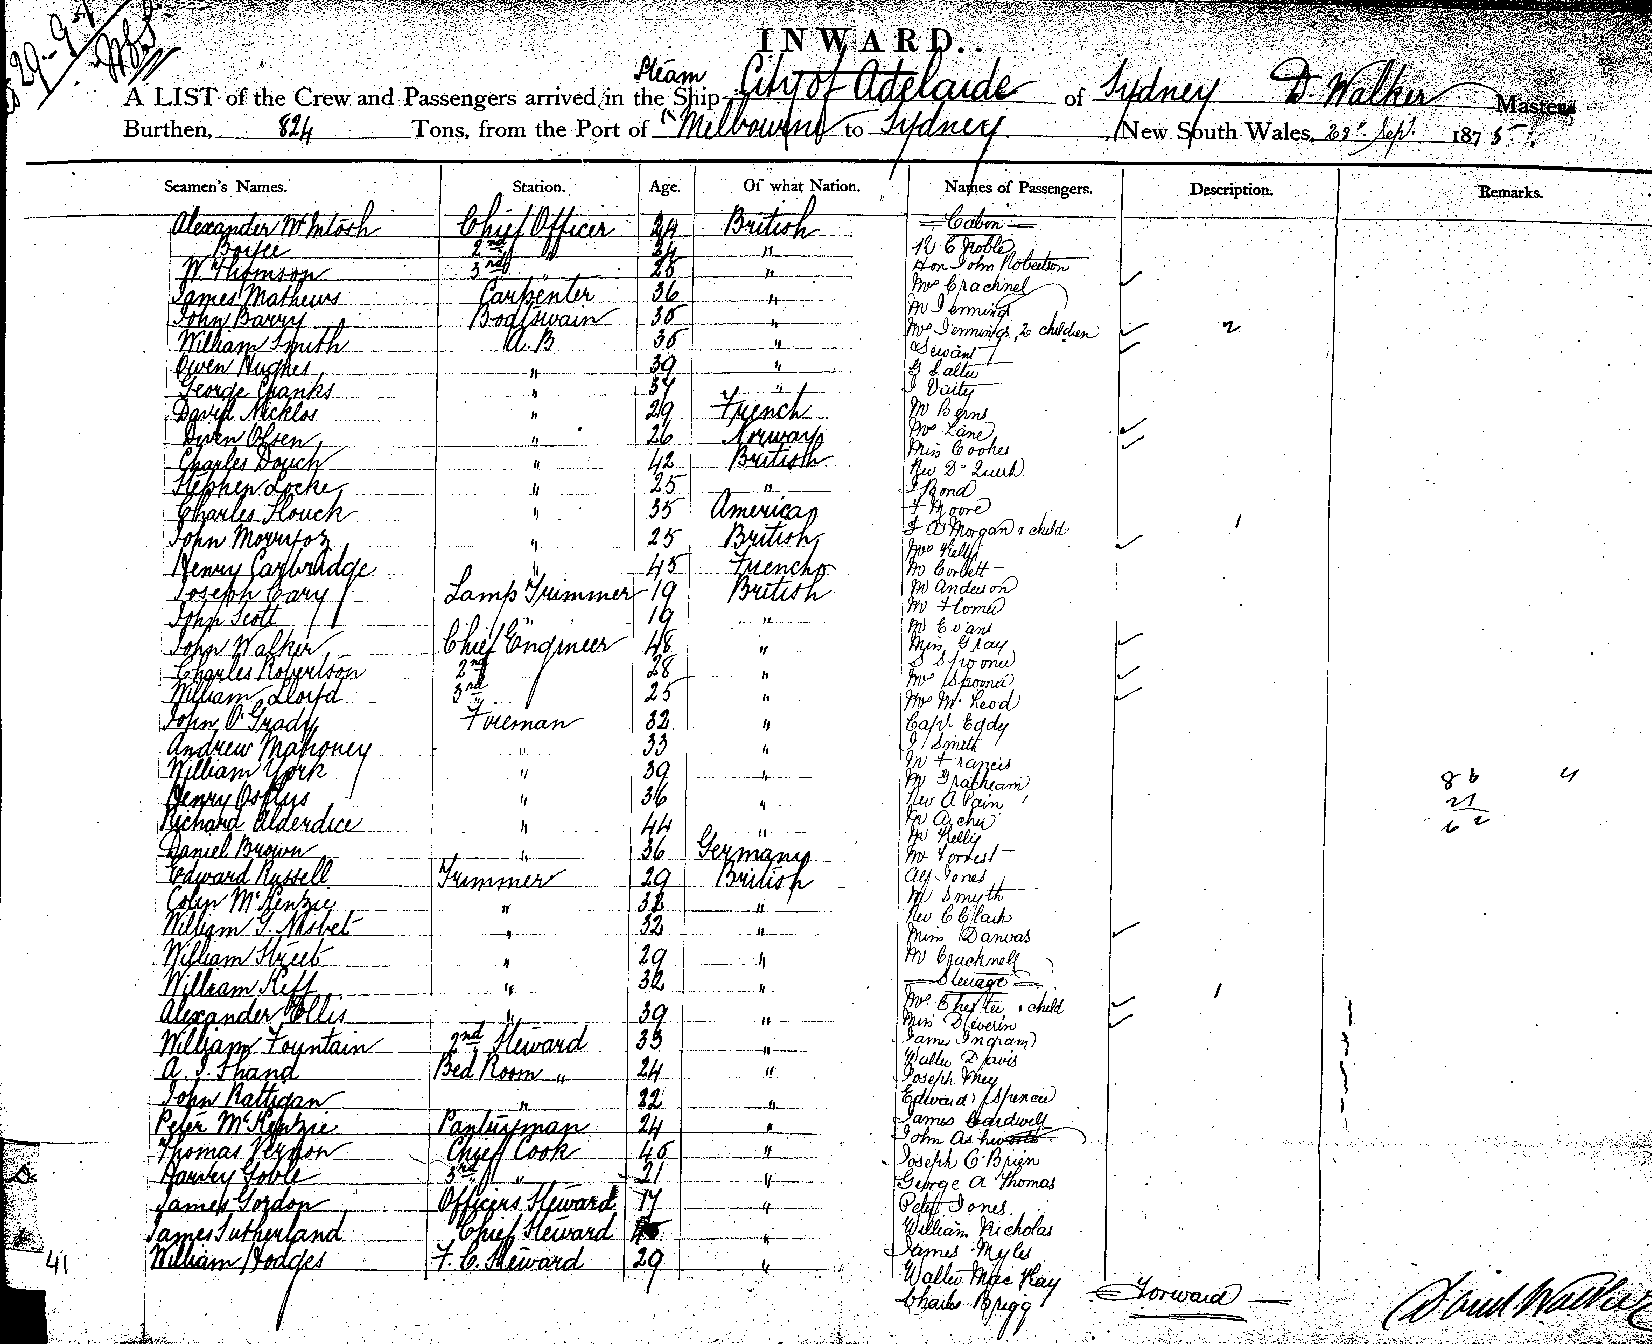 29-9-75
INWARD.
A LIST of the Crew and Passengers arrived in the Steam Ship City of Adelaide of Sydney D. Walker Master
Burthen, 824 Tons, from the Port of Melbourne to Sydney New South Wales, 28th Sept. 1875
Seamen's Names. Station. Age. Of what Nation. Names of Passengers. Description. Remarks.
Alexander McIntosh Chief Officer 24 British Cabin
Boyce 2nd " 24 " R E Noble
W Thomson 3rd " 28 " Hon John Robertson
James Mathews Carpenter 36 " Mrs Cracknel
John Barry Boatswain 35 " Mr Jennings
William Smith A.B 35 " Mrs Jennings, 2 children 2
Owen Hughes " 39 " Servant
George Shanks " 37 " G Salter
David Nicklos " 29 French J Vaity
Owen Olsen " 26 Norway Mr Berns
Charles Douch " 42 British Mrs Lane
Stephen Locke " 25 " Miss Cookes
Charles Flouck " 35 American Rev Dr Quirk
John Morritoz " 25 British J Bond
Henry Carbridge " 45 French F Moore
Joseph Cary Lamp Trimmer 19 British F A Morgan & child 1
John Scott " 19 " Mrs Kelly
John Walker Chief Engineer 48 " Mr Corbett
Charles Robertson 2nd " 28 " Mr Anderson
William Lloyd 3rd " 25 " Mr Homer
John O'Grady Fireman 32 " Mr Evans
Andrew Mahoney " 33 " Miss Gray
William York " 39 " S Spooner
Henry " 36 " Mrs Spooner
Richard Alderdice " 44 " Mrs McLeod
Daniel Brown " 36 Germany Capt. Eddy
Edward Russell Trimmer 29 British J Smith
Colin McKenzie " 32 " Mr Francis
William G. Nisbet " 32 " Mr Gratheam
William Street " 29 " Rev A Pain
William Keff " 32 " Mr Archer
Alexander Ellis " 39 " Mr Kelly
William Fountain 2nd Steward 33 " Mr Forrest
A. J. Shand Bed Room " 24 " Alf Jones
John Rattigan " 32 " Mr Smyth
Peter McKenzie Pantryman 24 " Rev C Clark
Thomas Vernon Chief Cook 45 " Miss Danvas
Harry Goble 3rd " 21 " Mr Cracknell
James Gordon Officers Steward 17 " Steerage
James Sutherland Chief Steward " Mrs Chester & child 1
41 William Hodges F. C. Steward 29 " Miss Deverin
James Ingram
Walter Davis
Joseph Mey
Edward Spencer
James Cardwell
John Ashworth
Joseph O'Brien
George A Thomas
Peter Jones
William Nicholas
James Myles
Walter MacKay
Charles Brigg
Forward
David Walker